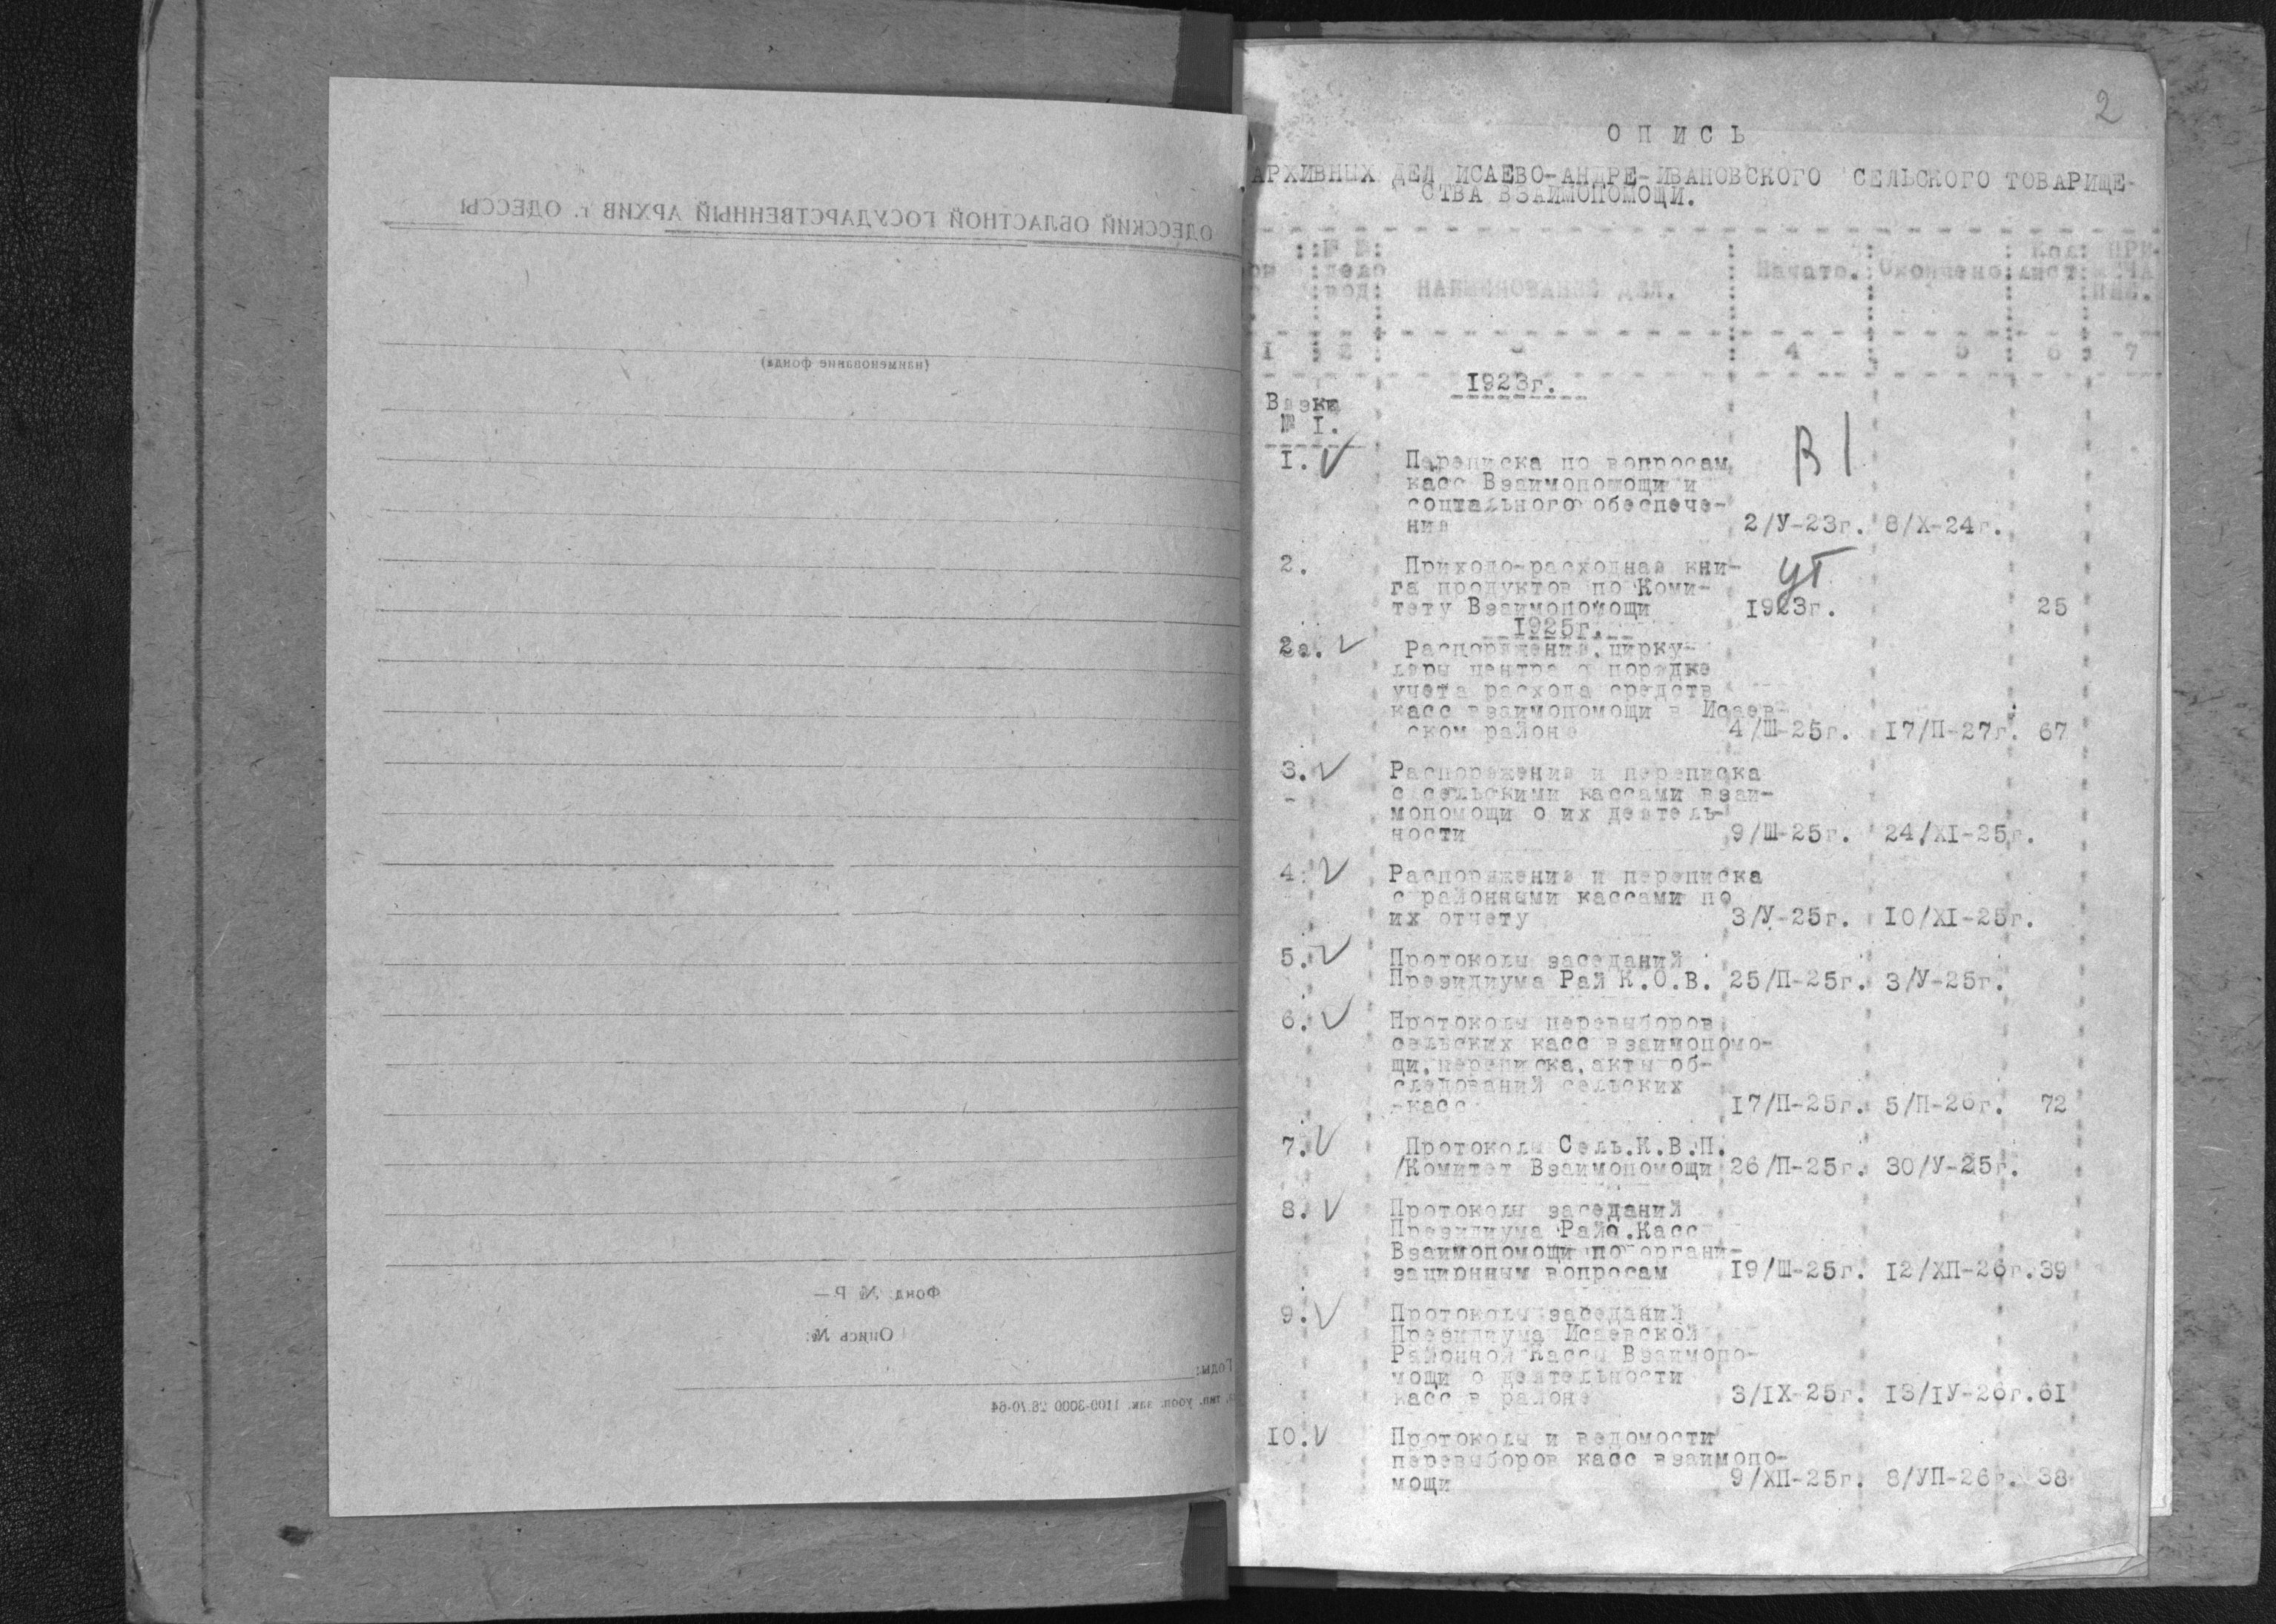 ОДЕССКИЙ ОБЛАСТНОЙ ГОСУДАРСТВЕННЫЙ АРХИВ г. ОДЕССЫ
(наименование фонда)
Фонд № Р—
Опись №
Годы:
тип. уооп. зак. 1100-3000 26.70-64
2
ОПИСЬ
АРХИВНЫХ ДЕЛ ИСАЕВО-АНДРЕ-ИВАНОВСКОГО СЕЛЬСКОГО ТОВАРИЩЕ-
СТВА ВЗАИМОПОМОЩИ.
№ № Кол: ПРИ-
дело Начато. Окончено лист МЕЧА
вод НАИМЕНОВАНИЕ ДЕЛ. НИЕ.
1 2 3 4 5 6 7
1923г.
Вязка
№ I.
I. V Переписка по вопросам В1
касс Взаимопомощи и
социального обеспече-
ния 2/У-23г. 8/Х-24г.
2. Приходо-расходная кни- ут
га продуктов по Коми-
тету Взаимопомощи 1923г. 25
1925г.
2а. V Распоряжения, цирку-
ляры центра о порядке
учета расхода средств
касс взаимопомощи в Исаев-
ском районе 4/Ш-25г. 17/П-27г. 67
3. V Распоряжения и переписка
с сельскими кассами взаи-
мопомощи о их деятель-
ности 9/Ш-25г. 24/ХI-25г.
4. V Распоряжения и переписка
с районными кассами по
их отчету 3/У-25г. 10/ХI-25г.
5. V Протоколы заседаний
Президиума Рай К.О.В. 25/П-25г. 3/У-25г.
6. V Протоколы перевыборов
сельских касс взаимопомо-
щи, переписка, акты об-
следований сельских
касс 17/П-25г. 5/П-26г. 72
7. V Протоколы Сель.К.В.П.
/Комитет Взаимопомощи 26/П-25г. 30/У-25г.
8. V Протоколы заседаний
Президиума Райо.Касс
Взаимопомощи по органи-
зационным вопросам 19/Ш-25г. 12/ХП-26г. 39
9. V Протоколы заседаний
Президиума Исаевской
Районной Кассы Взаимопо-
мощи о деятельности
касс в районе 3/IХ-25г. 13/IУ-26г. 61
10. V Протоколы и ведомости
перевыборов касс взаимопо-
мощи 9/ХП-25г. 8/УП-26г. 38